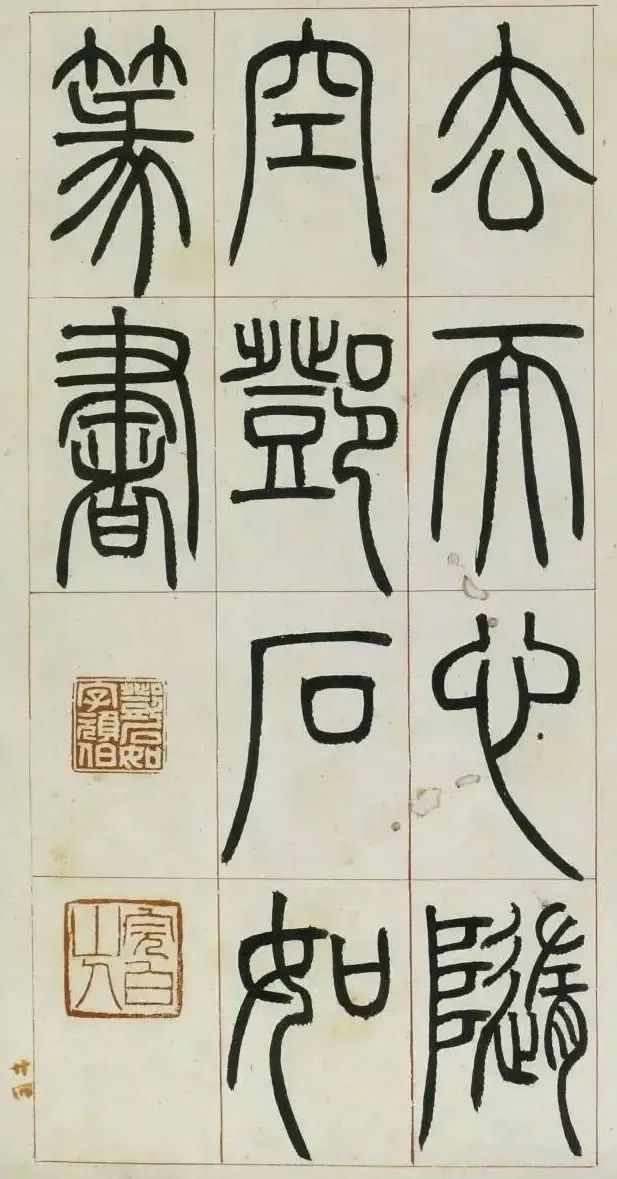 去而心隨
空鄧石如
篆書
鄧石如
字頑伯
完白
山人
廿四